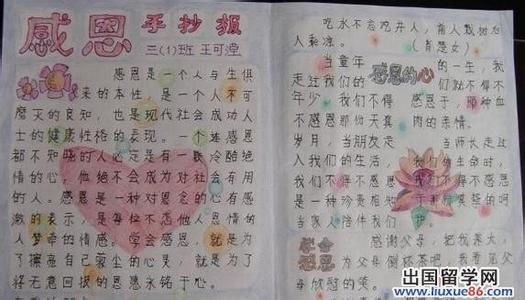 感恩 手抄报
三(1)班 王可滢
感恩是一个人与生俱
来的本性，是一个人不可
磨灭的良知，也是现代社会成功人
士的健康性格的表现。一个连感恩
都不知晓的人必定是有一颗冷酷绝
情的心，他绝不会成为对社会有用
的人。感恩是一种对恩惠心存感
激的表示，是每位不忘他人恩情的
人萦绕的情感。学会感恩，就是为了
擦亮自己蒙尘的心灵，就是为了
将无意回报的恩惠永铭于心。
吃水不忘吃井人，前人栽树后
人乘凉。
感恩的心
当童年 的一生，我
走过我们的 们就不得不
年少 我们不得 感恩于，那种血
不感恩那份天真 肉的亲情。
岁月，当朋友走 当师长走过
入我们的生活， 我们的生命时，
我们不得不感恩 我们不得不感恩
是一种珍贵相
当家人陪伴我们
学会感恩
感谢父母，把我养大，
为父母倒杯茶吧，我愿
母欣慰的笑。
出国留学网
www.liuxue86.com